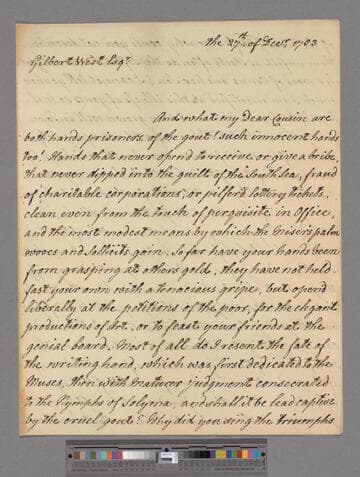 the 27th of Decr. 1753
Gilbert West Esqr.
And what my Dear Cousin are
both hands prisoners of the gout! such innocent hands
too! Hands that never opend to receive or give a bribe,
that never dipped into the guilt of the South sea, fraud
of charitable corporations, or pilferd lottery tickets.
clean even from the touch of perquisite in Office,
and the most modest means by which the Miser's palm
wooes and sollicits gain. So far have your hands been
from grasping at others gold, they have not held
fast your own with a tenacious gripe, but opend
liberally at the petitions of the poor, for the elegant
productions of Art, or to feast your friends at the
genial board. Most of all do I resent the fate of
the writing hand, which was first dedicated to the
Muses, then with maturer judgment consecrated
to the Nymphs of Solyma, and shall it be lead captive
by the cruel gout? Why did you sing the triumphs